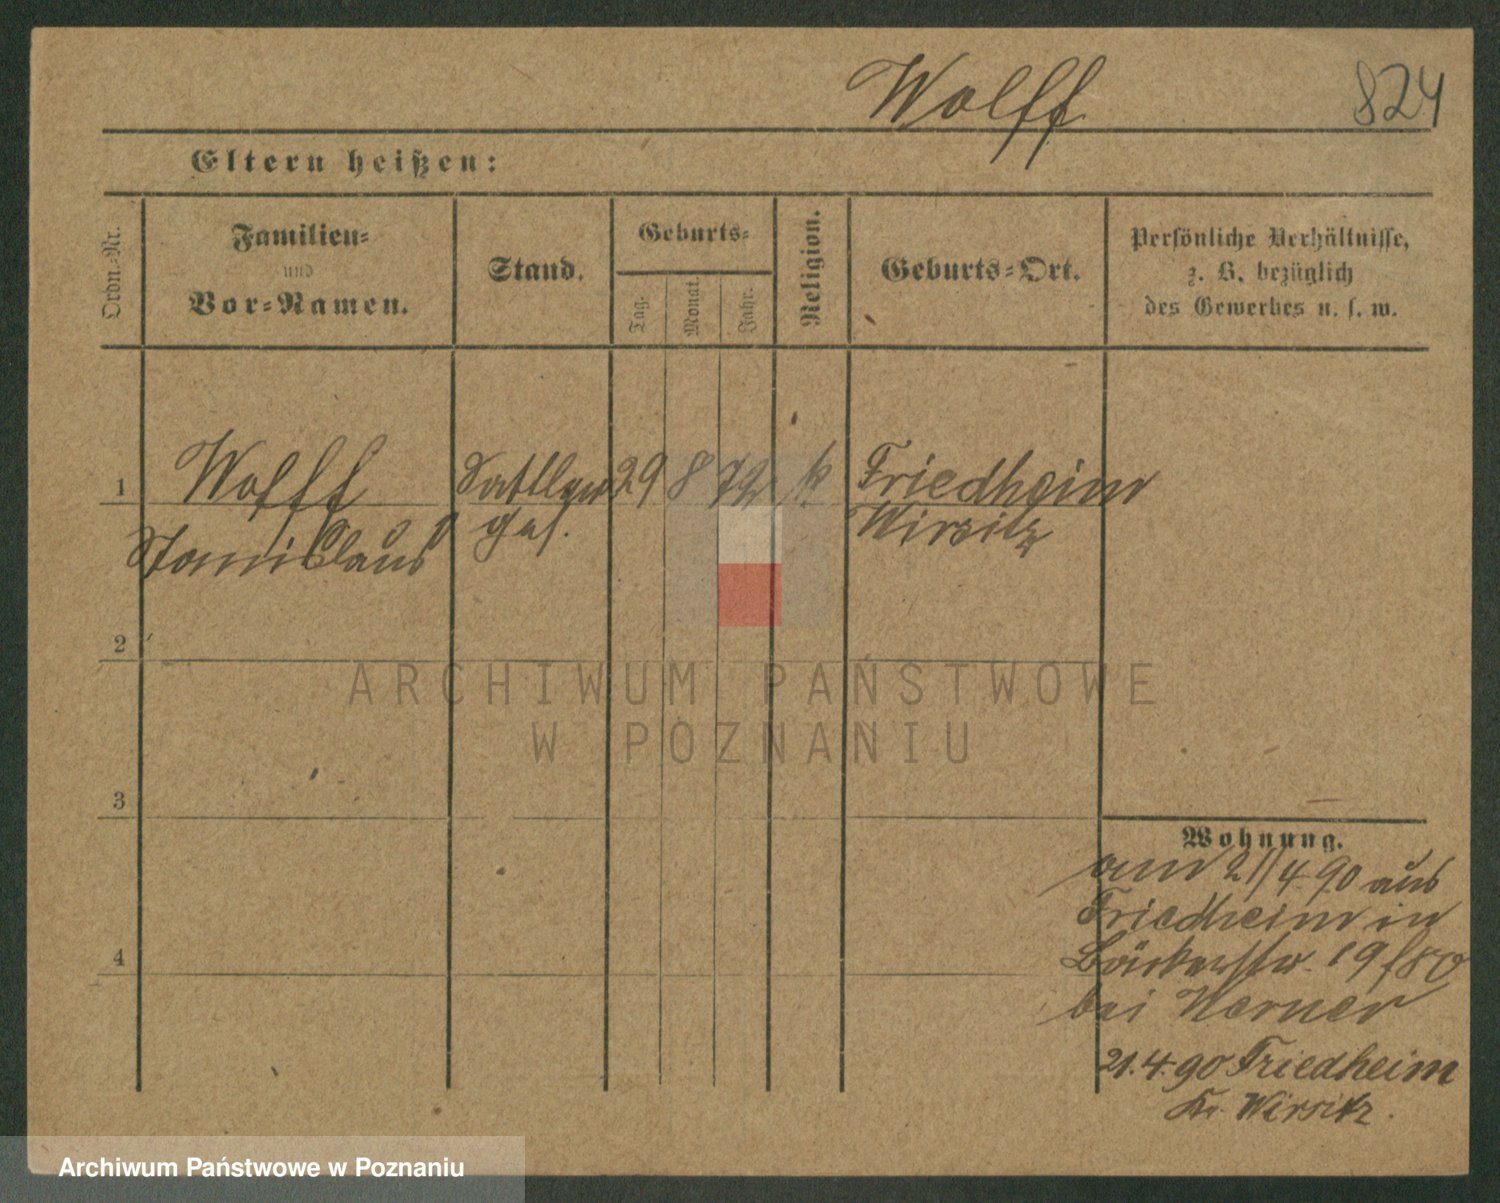 Wolff 824
Eltern heißen:
Ordn.-Nr.
Familien=
und
Vor=Namen.
Stand.
Geburts=
Tag.
Monat.
Jahr.
Religion.
Geburts=Ort.
Persönliche Verhältnisse,
z. B. bezüglich
des Gewerbes u. s. w.
1 Wolff Sattler 29 8 72 k Friedheim
Stanislaus ges. Wirsitz
2
3
4
Wohnung.
am 21/4.90 aus
Friedheim in
Bäckerstr. 19
bei Werner
21.4.90 Friedheim
Kr. Wirsitz.
ARCHIWUM PAŃSTWOWE
W POZNANIU
Archiwum Państwowe w Poznaniu